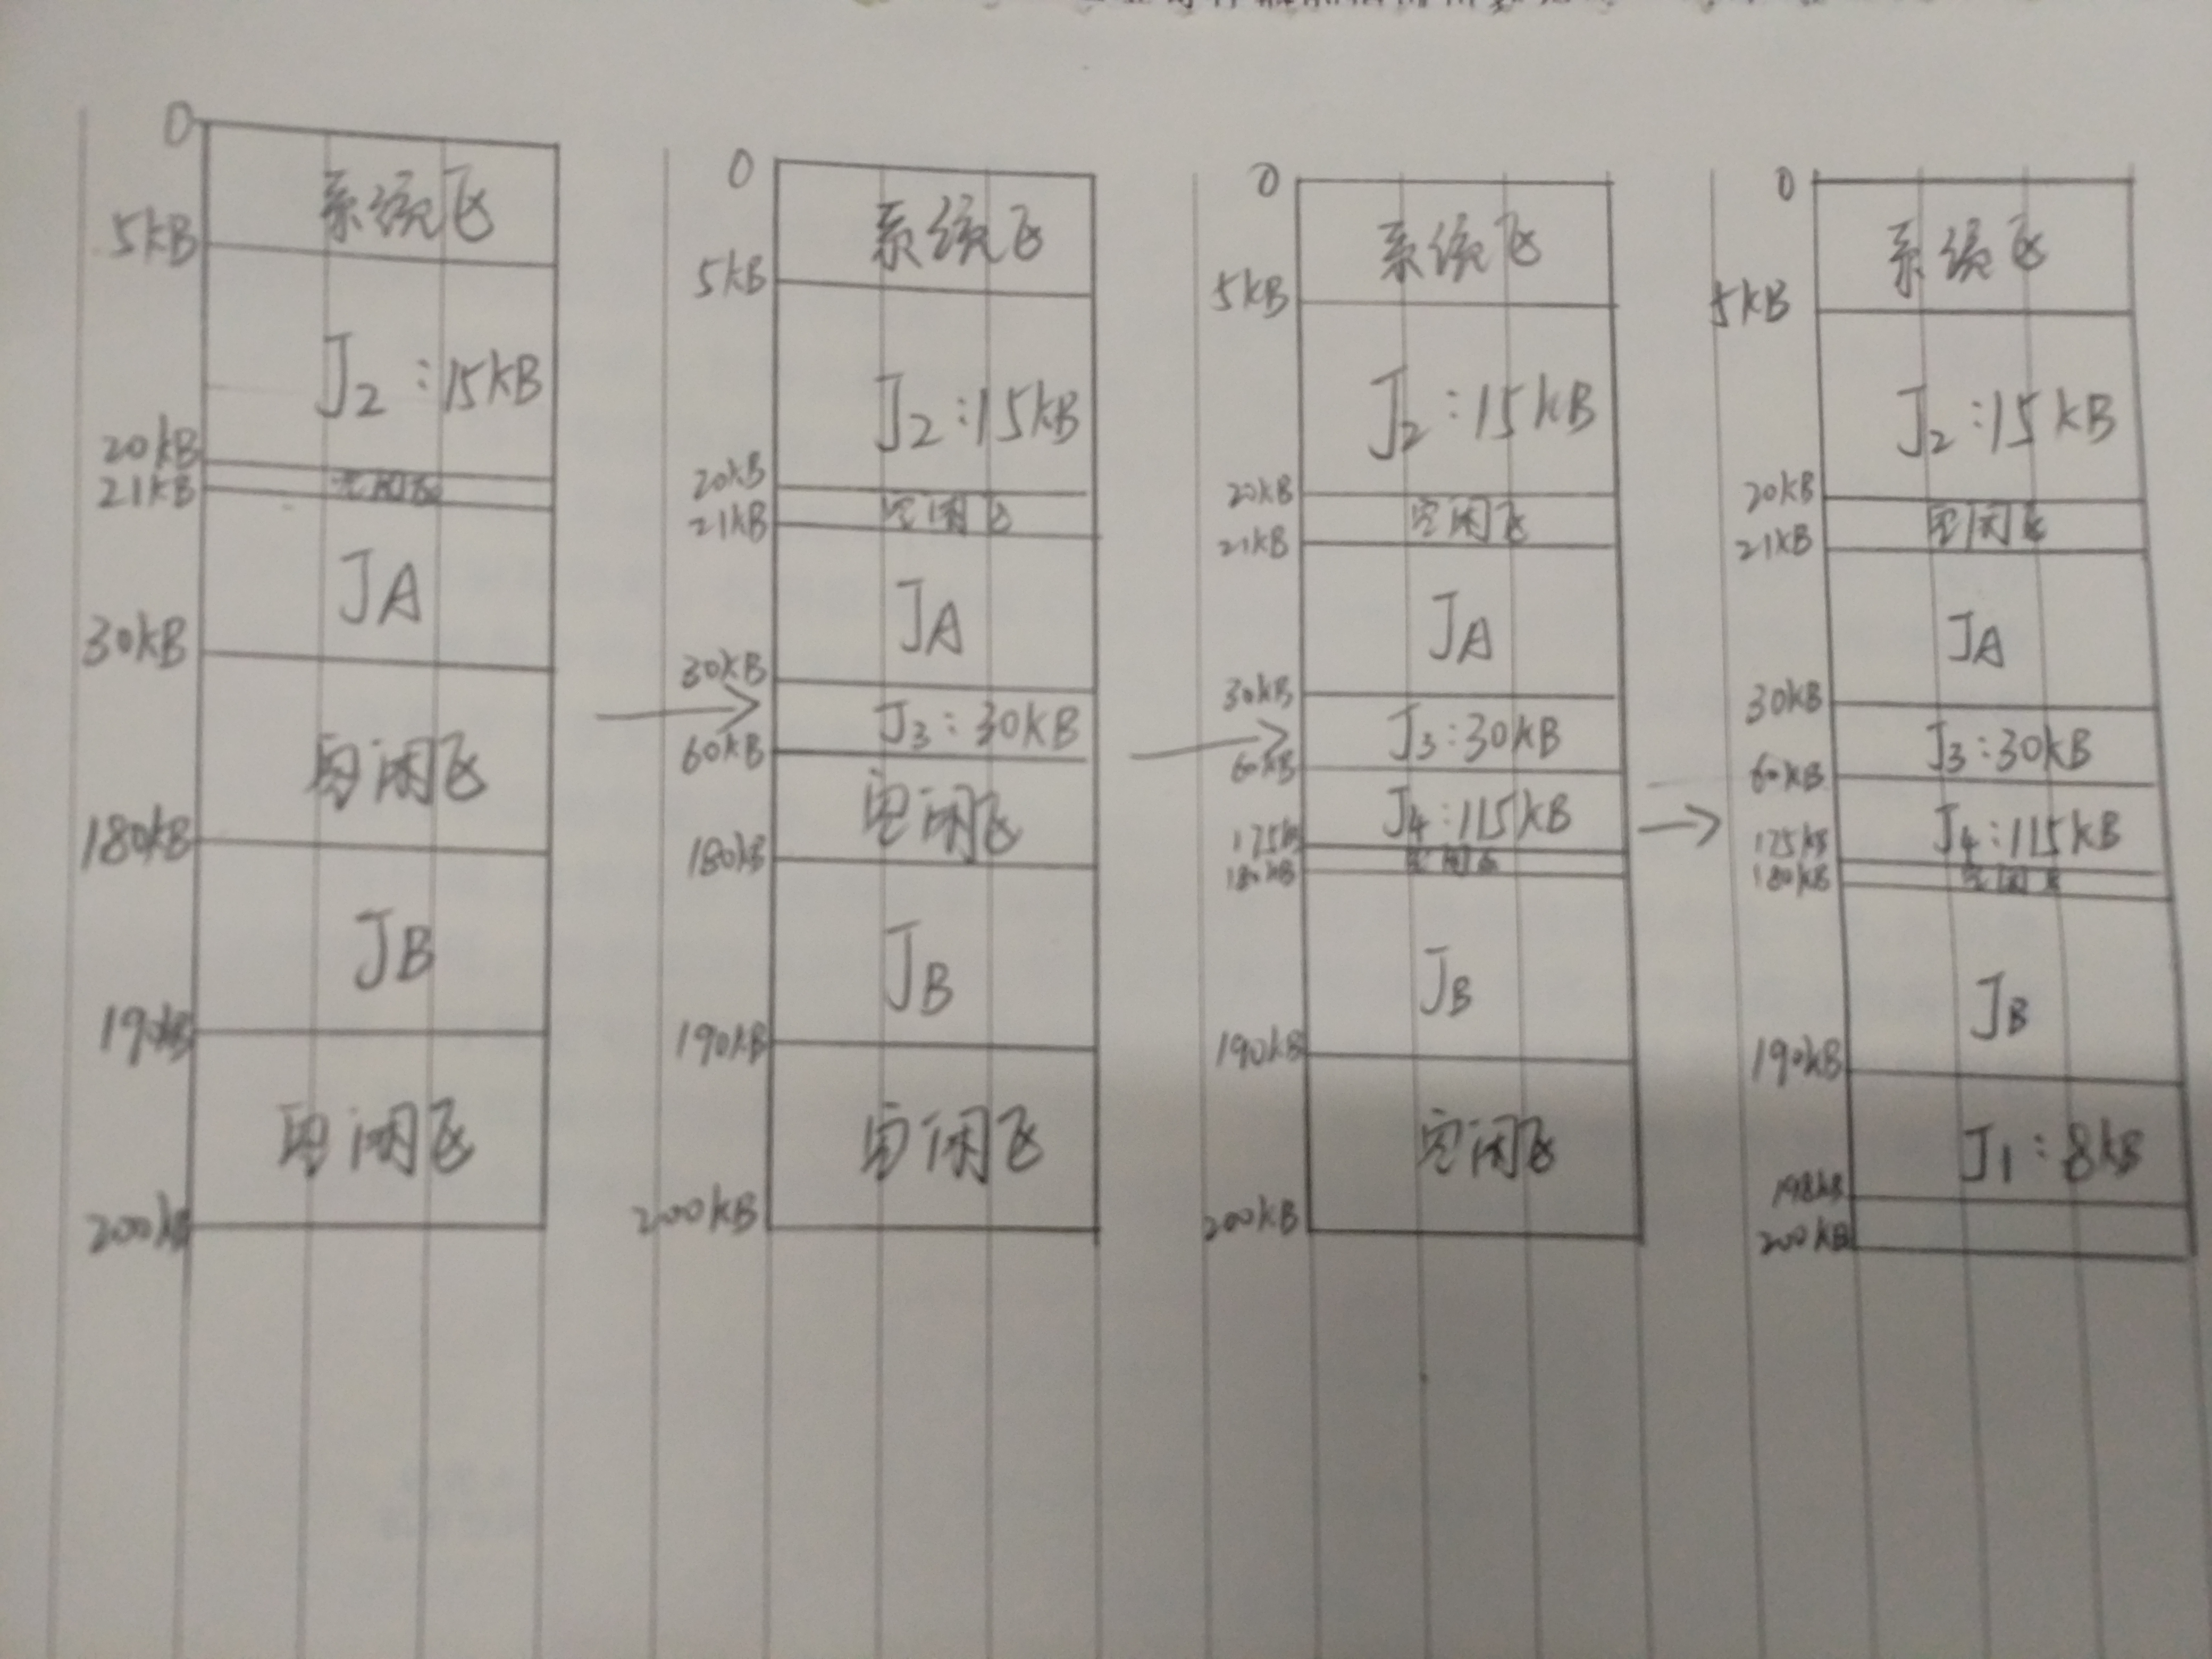 0
系统区
5kB
J2:15kB
20kB
21kB
JA
30kB
空闲区
180kB
JB
190kB
空闲区
200kB
0
系统区
5kB
J2:15kB
20kB
空闲区
21kB
JA
30kB
J3:30kB
60kB
空闲区
180kB
JB
190kB
空闲区
200kB
0
系统区
5kB
J2:15kB
20kB
空闲区
21kB
JA
30kB
J3:30kB
60kB
J4:115kB
175k
空闲区
180kB
JB
190kB
空闲区
200kB
0
系统区
5kB
J2:15kB
20kB
空闲区
21kB
JA
30kB
J3:30kB
60kB
J4:115kB
175kB
空闲区
180kB
JB
190kB
J1:8kB
198kB
200kB